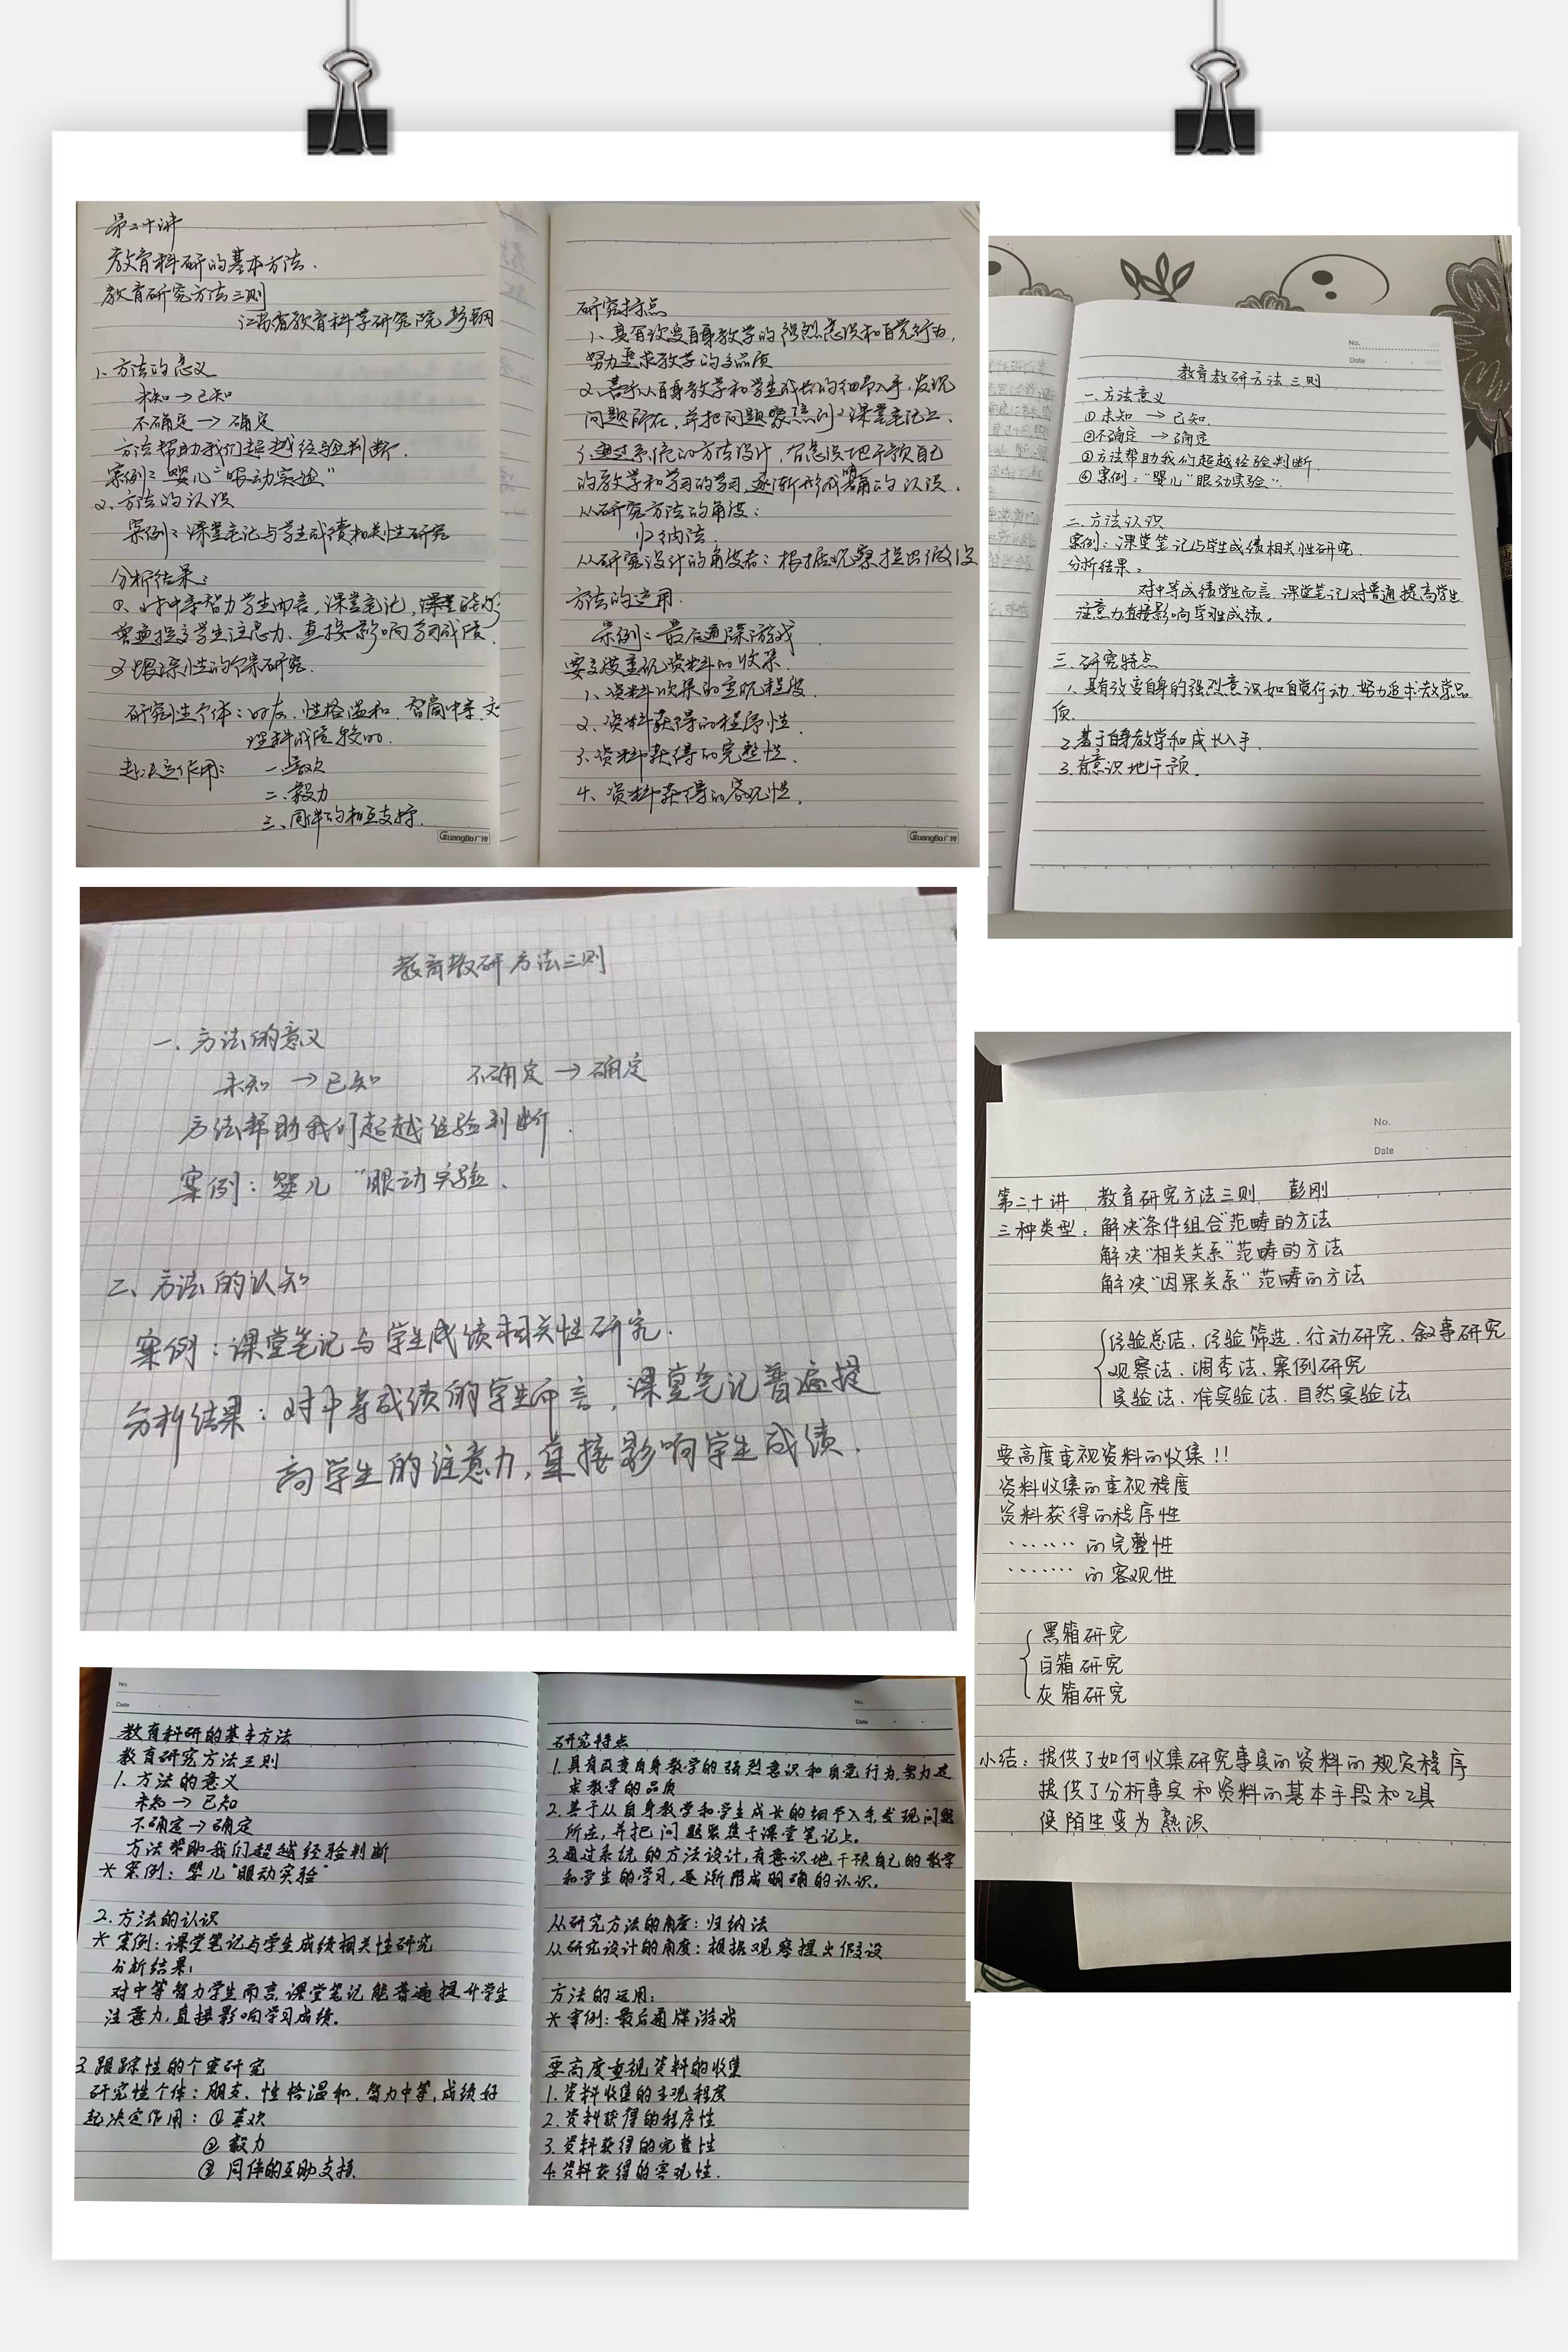 第二十讲
教育科研的基本方法.
教育研究方法三则
江苏省教育科学研究院 彭钢
1、方法的意义
未知→已知
不确定→确定
方法帮助我们超越经验判断.
案例:"婴儿"眼动实验"
2、方法的认识
案例:课堂笔记与学生成绩相关性研究
分析结果:
①、对中等智力学生而言,课堂笔记,课堂
普遍提高学生注意力、直接影响学习成绩.
②跟踪性的个案研究.
研究性个体:好友,性格温和,智商中等,文
理科成绩较好.
起决定作用: 一、喜欢
二、毅力
三、同伴的相互支持.
GuangBo广博
研究特点
1、具有改变自身教学的强烈意识和自觉行为,
努力要求教学的高品质
2、善于从自身教学和学生成长的细节入手,发现
问题所在,并把问题聚焦到课堂笔记上、
3通过系统的方法设计,有意识地干预自己
的教学和学习的学习,逐渐形成明确的认识.
从研究方法的角度:
归纳法.
从研究设计的角度看:根据观察提出假设
方法的运用.
案例:最后通牒游戏
要高度重视资料的收集.
1、资料收集的重视程度.
2、资料获得的程序性.
3、资料获得的完整性.
4、资料获得的客观性.
GuangBo广博
No.
Date
教育教研方法三则
一.方法意义
①未知 → 已知.
②不确定 → 确定
③方法帮助我们超越经验判断.
④案例:"婴儿"眼动实验".
二.方法认识
案例:课堂笔记与学生成绩相关性研究.
分析结果:
对中等成绩学生而言.课堂笔记对普通提高学生
注意力直接影响学习成绩。
三.研究特点
1.具有改变自身的强烈意识如自觉行动.努力追求教学品
质.
2.基于自身教学和成长入手.
3.有意识地干预.
教育教研方法三则
一.方法的意义
未知→已知 不确定→确定
方法帮助我们超越经验判断.
案例:婴儿"眼动实验.
二、方法的认知
案例:课堂笔记与学生成绩相关性研究.
分析结果:对中等成绩的学生而言,课堂笔记普遍提
高学生的注意力,直接影响学生成绩.
No.
Date
第二十讲 教育研究方法三则 彭刚
三种类型:解决"条件组合"范畴的方法
解决"相关关系"范畴的方法
解决"因果关系"范畴的方法
经验总结、经验筛选.行动研究、叙事研究
观察法、调查法、案例研究
实验法、准实验法.自然实验法
要高度重视资料的收集!!
资料收集的重视程度
资料获得的程序性
……的完整性
……的客观性
黑箱研究
白箱研究
灰箱研究
小结:提供了如何收集研究事实的资料的规定程序
提供了分析事实和资料的基本手段和工具
使陌生变为熟识
No.
Date
教育科研的基本方法
教育研究方法三则
1.方法的意义
未知→已知
不确定→确定
方法帮助我们超越经验判断
*案例:婴儿"眼动实验"
2.方法的认识
*案例:课堂笔记与学生成绩相关性研究
分析结果:
对中等智力学生而言,课堂笔记能普遍提升学生
注意力,直接影响学习成绩.
3.跟踪性的个案研究
研究性个体:朋友.性格温和,智力中等,成绩好
起决定作用:①喜欢
②毅力
③同伴的互助支持.
No.
Date
研究特点
1.具有改变自身教学的强烈意识和自觉行为,努力追
求教学的品质
2.善于从自身教学和学生成长的细节入手,发现问题
所在,并把问题聚焦于课堂笔记上。
3.通过系统的方法设计,有意识地干预自己的教学
和学生的学习,逐渐形成明确的认识。
从研究方法的角度:归纳法
从研究设计的角度:根据观察提出假设
方法的运用:
*案例:最后通牒游戏
要高度重视资料的收集
1.资料收集的重视程度
2.资料获得的程序性
3.资料获得的完整性
4.资料获得的客观性.